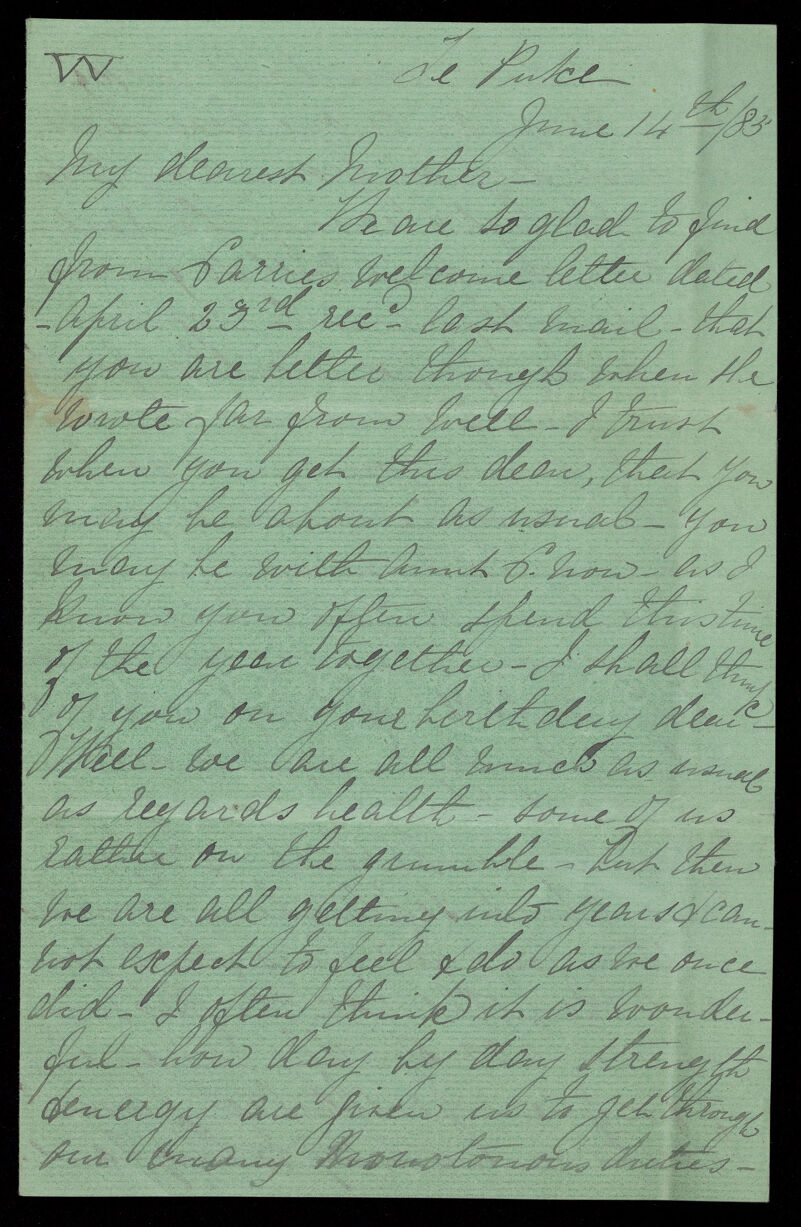 W
Te Puke
June 14th/85
My dearest Mother -
We are so glad to find
from Carries welcome letter dated
April 23rd rec'd last mail - that
you are better though when she
wrote far from well - I trust
when you get this dear, that you
may be about as usual - you
may be with Aunt C. now - as I
know you often spend this time
of the year together - I shall think
of you on your birthday dear -
Well - we are all much as usual
as regards health - some of us
rather on the grumble - but then
we are all getting into years & can-
not expect to feel & do as we once
did - I often think it is wonder-
ful - how day by day strength
& energy are given us to get through
our many monotonous duties -